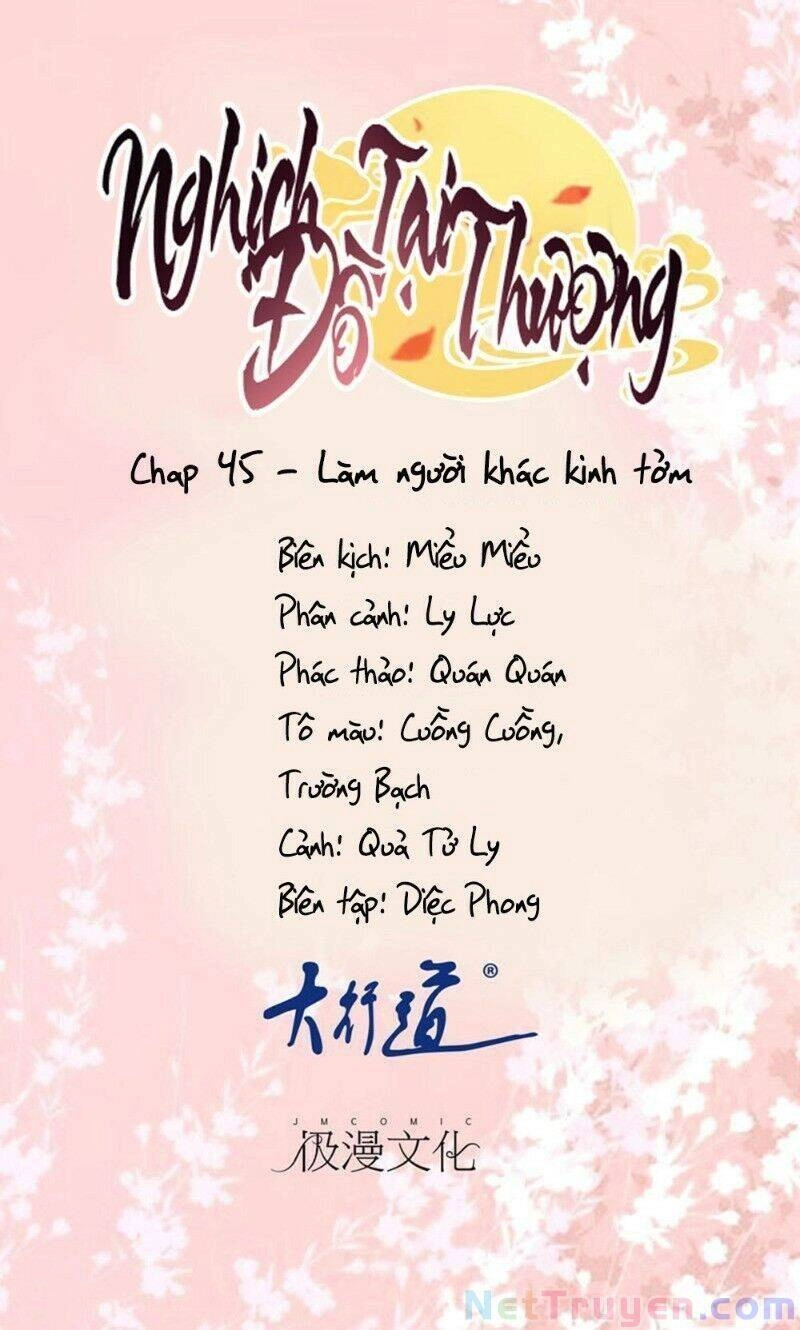 Nghịch Đồ Tại Thượng
Chap 45 - Làm người khác kinh tởm
Biên kịch: Miểu Miểu
Phân cảnh: Ly Lực
Phác thảo: Quán Quán
Tô màu: Cuồng Cuồng,
Trường Bạch
Cảnh: Quả Tử Ly
Biên tập: Diệc Phong
大行道®
JMCOMIC
极漫文化
NetTruyen.com